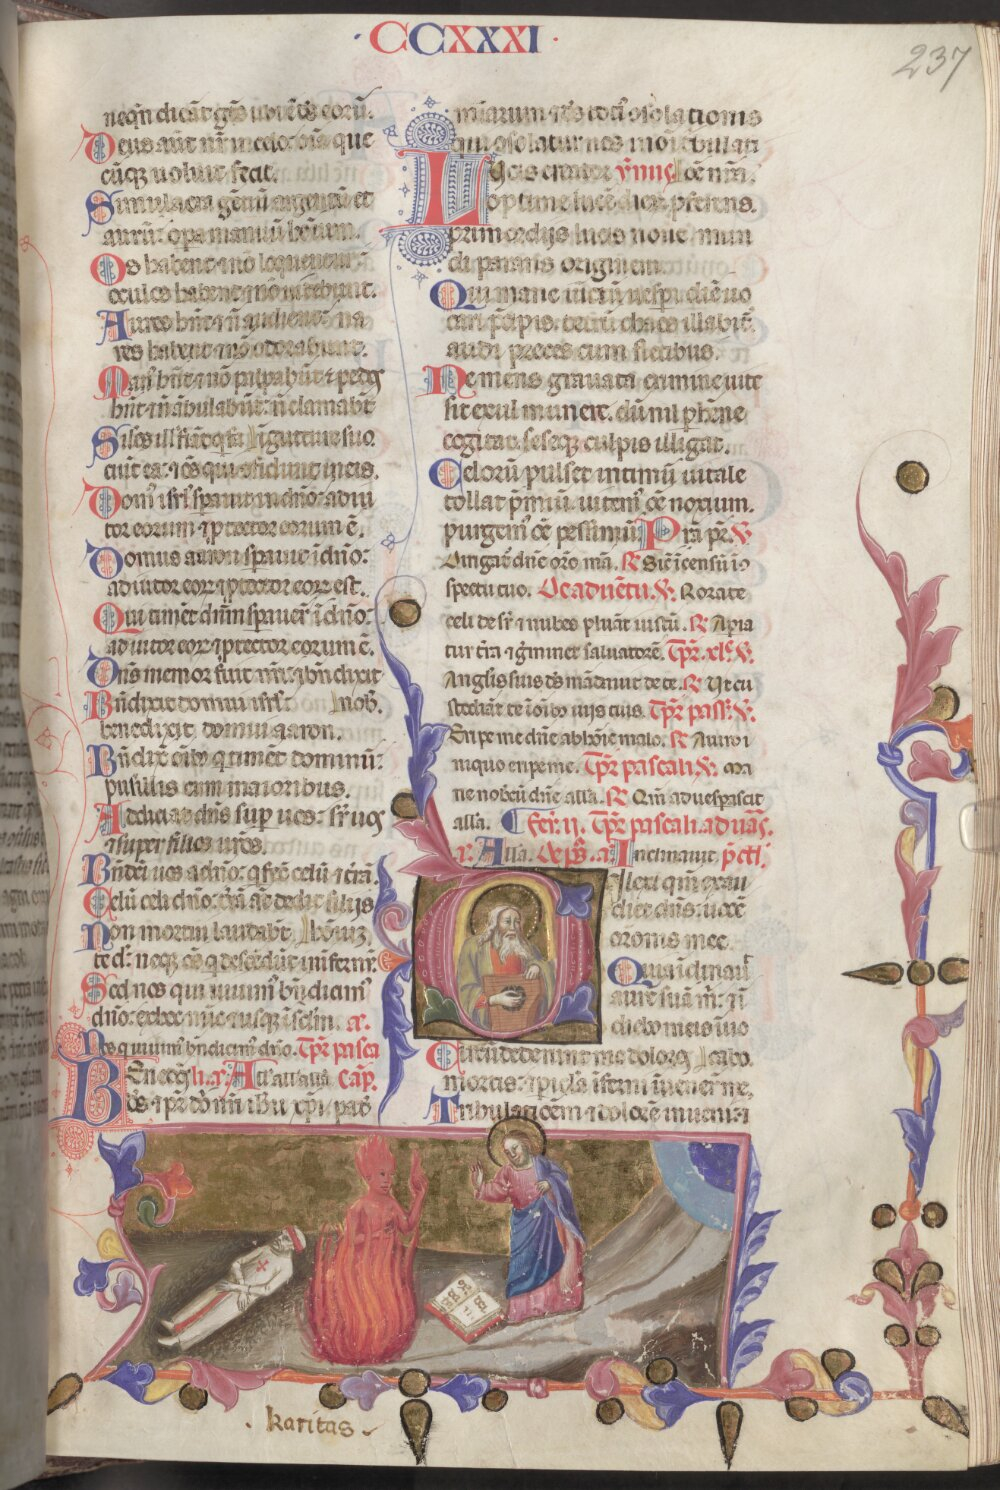 CCXXXI
237
neqn dicāt gẽs ubi ẽ ds̃ eorū.
Deus aūt nr̃ in celo: oĩa que
cūq; uoluit fecit.
Simulacra gētiū argentū et
aurū: opa manuū hoĩum.
Os habent ⁊ nō loquentur:
oculos habent ⁊ nō uidebunt.
Aures hn̄t ⁊ n̄ audient: na
res habent ⁊ nō odorabunt.
Man' hn̄t ⁊ nō palpabūt: pedes
hn̄t ⁊ n̄ ābulabūt: n̄ clamabūt
Siles ill' fiāt q faciūt ea: ⁊ oēs qui cōfidunt in eis.
Dom' isrl' sperauit in dño: adiu
tor eorum ⁊ ptector eorum ē.
Domus aaron sperauit ĩ dño:
adiutor eor ⁊ ptector eor est.
Qui timēt dñm sperauer̃ ĩ dño:
adiutor eor ⁊ ptector eorum ē.
Dñs memor fuit nr̃i: ⁊ bn̄dixit
Bn̄dixit domui isrl': nob.
benedixit domui aaron.
Bn̄dix̃ oĩb; q timēt dominū:
pusillis cum maioribus.
Adiciat dñs sup uos: sr̃ uos
⁊ super filios uros.
Bn̄dcti uos a dño: q fec̃ celū ⁊ trā.
Celū celi dño: trā aūt dedit filijs
Non mortui laudabt hoĩuz.
te dñ: neq; oēs q descēdūt in infernū.
Sed nos qui uiuim' bn̄dicim'
dño: ex hoc nūc ⁊ usq; ĩ sclm. a.
Nos q uiuim' bn̄dicim' dño. Tpr̃ pasca
a. All'a all'a all'a. Cap.
Bn̄s ds ⁊ pr dñi nr̃i ihu xp̄i, pat̃
miarum ⁊ ds toti' ɔsolationis
qui ɔsolatur nos ĩ oĩ tribulati
Lucis creator ymnus one nr̃a.
optime lucē dier pferens.
primordijs lucis noue mun
di parans originem.
Qui mane iūctū uespi diē uo
cari pcipis. tetrū chaos illabit̃.
audi preces cum fletibus.
Ne mens grauata crimine uite
sit exul munere. dū nil phēne
cogitat. seseq; culpis illigat.
Celorū pulset intimū uitale
tollat pmiū. uitem' oē noxium.
purgem' oē pessimū. Pr̃a pr̃. V̷.
Dirigat̃ dñe oro mā. R̷ Sic̃ īcensū ĩ ɔ
spectu tuo. De aduētu. V̷. Rorate
celi desr̃ ⁊ nubes pluāt iustū. R̷ Apia
tur tr̃a ⁊ g̃minet saluatorē. Tpr̃. xlᵉ. V̷.
Anglis suis ds mādauit de te. R̷ Ut cu
stodiāt te ĩ oĩb; uijs tuis. Tpr̃ pass'. V̷.
Eripe me dñe ab hoīe malo. R̷ A uiro i
niquo eripe me. Tpr̃ pascali. V̷. Ma
ne nobcū dñe all'a. R̷ Qm̃ aduespascit
all'a. Fer̃. ij. Tpr̃ pascali. ad uās.
a. All'a. De ps̃. a. Inclinauit. pctī.
Dilexi qm̃ exau
diet dñs: uocē
oronis mee.
Quia ĩclinauit
aurē suā m̃: ⁊ ĩ
dieb; meis ĩuo
Circūdederunt me dolores cabo.
mortis: ⁊ picla inferni ĩuenerūt me.
Tribulationem ⁊ dolorē inueni: ⁊
karitas